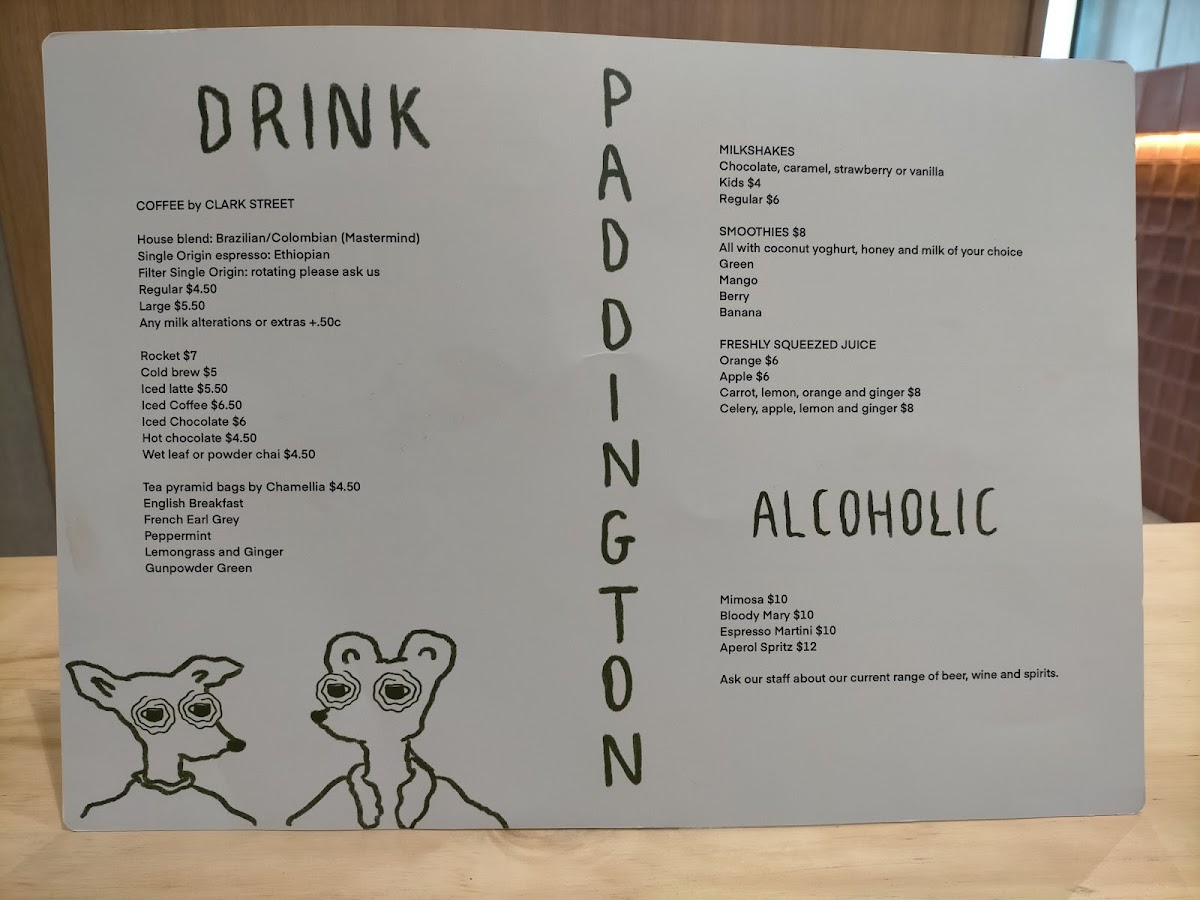 DRINK
COFFEE by CLARK STREET
House blend: Brazilian/Colombian (Mastermind)
Single Origin espresso: Ethiopian
Filter Single Origin: rotating please ask us
Regular $4.50
Large $5.50
Any milk alterations or extras +.50c
Rocket $7
Cold brew $5
Iced latte $5.50
Iced Coffee $6.50
Iced Chocolate $6
Hot chocolate $4.50
Wet leaf or powder chai $4.50
Tea pyramid bags by Chamellia $4.50
English Breakfast
French Earl Grey
Peppermint
Lemongrass and Ginger
Gunpowder Green
PADDINGTON
MILKSHAKES
Chocolate, caramel, strawberry or vanilla
Kids $4
Regular $6
SMOOTHIES $8
All with coconut yoghurt, honey and milk of your choice
Green
Mango
Berry
Banana
FRESHLY SQUEEZED JUICE
Orange $6
Apple $6
Carrot, lemon, orange and ginger $8
Celery, apple, lemon and ginger $8
ALCOHOLIC
Mimosa $10
Bloody Mary $10
Espresso Martini $10
Aperol Spritz $12
Ask our staff about our current range of beer, wine and spirits.